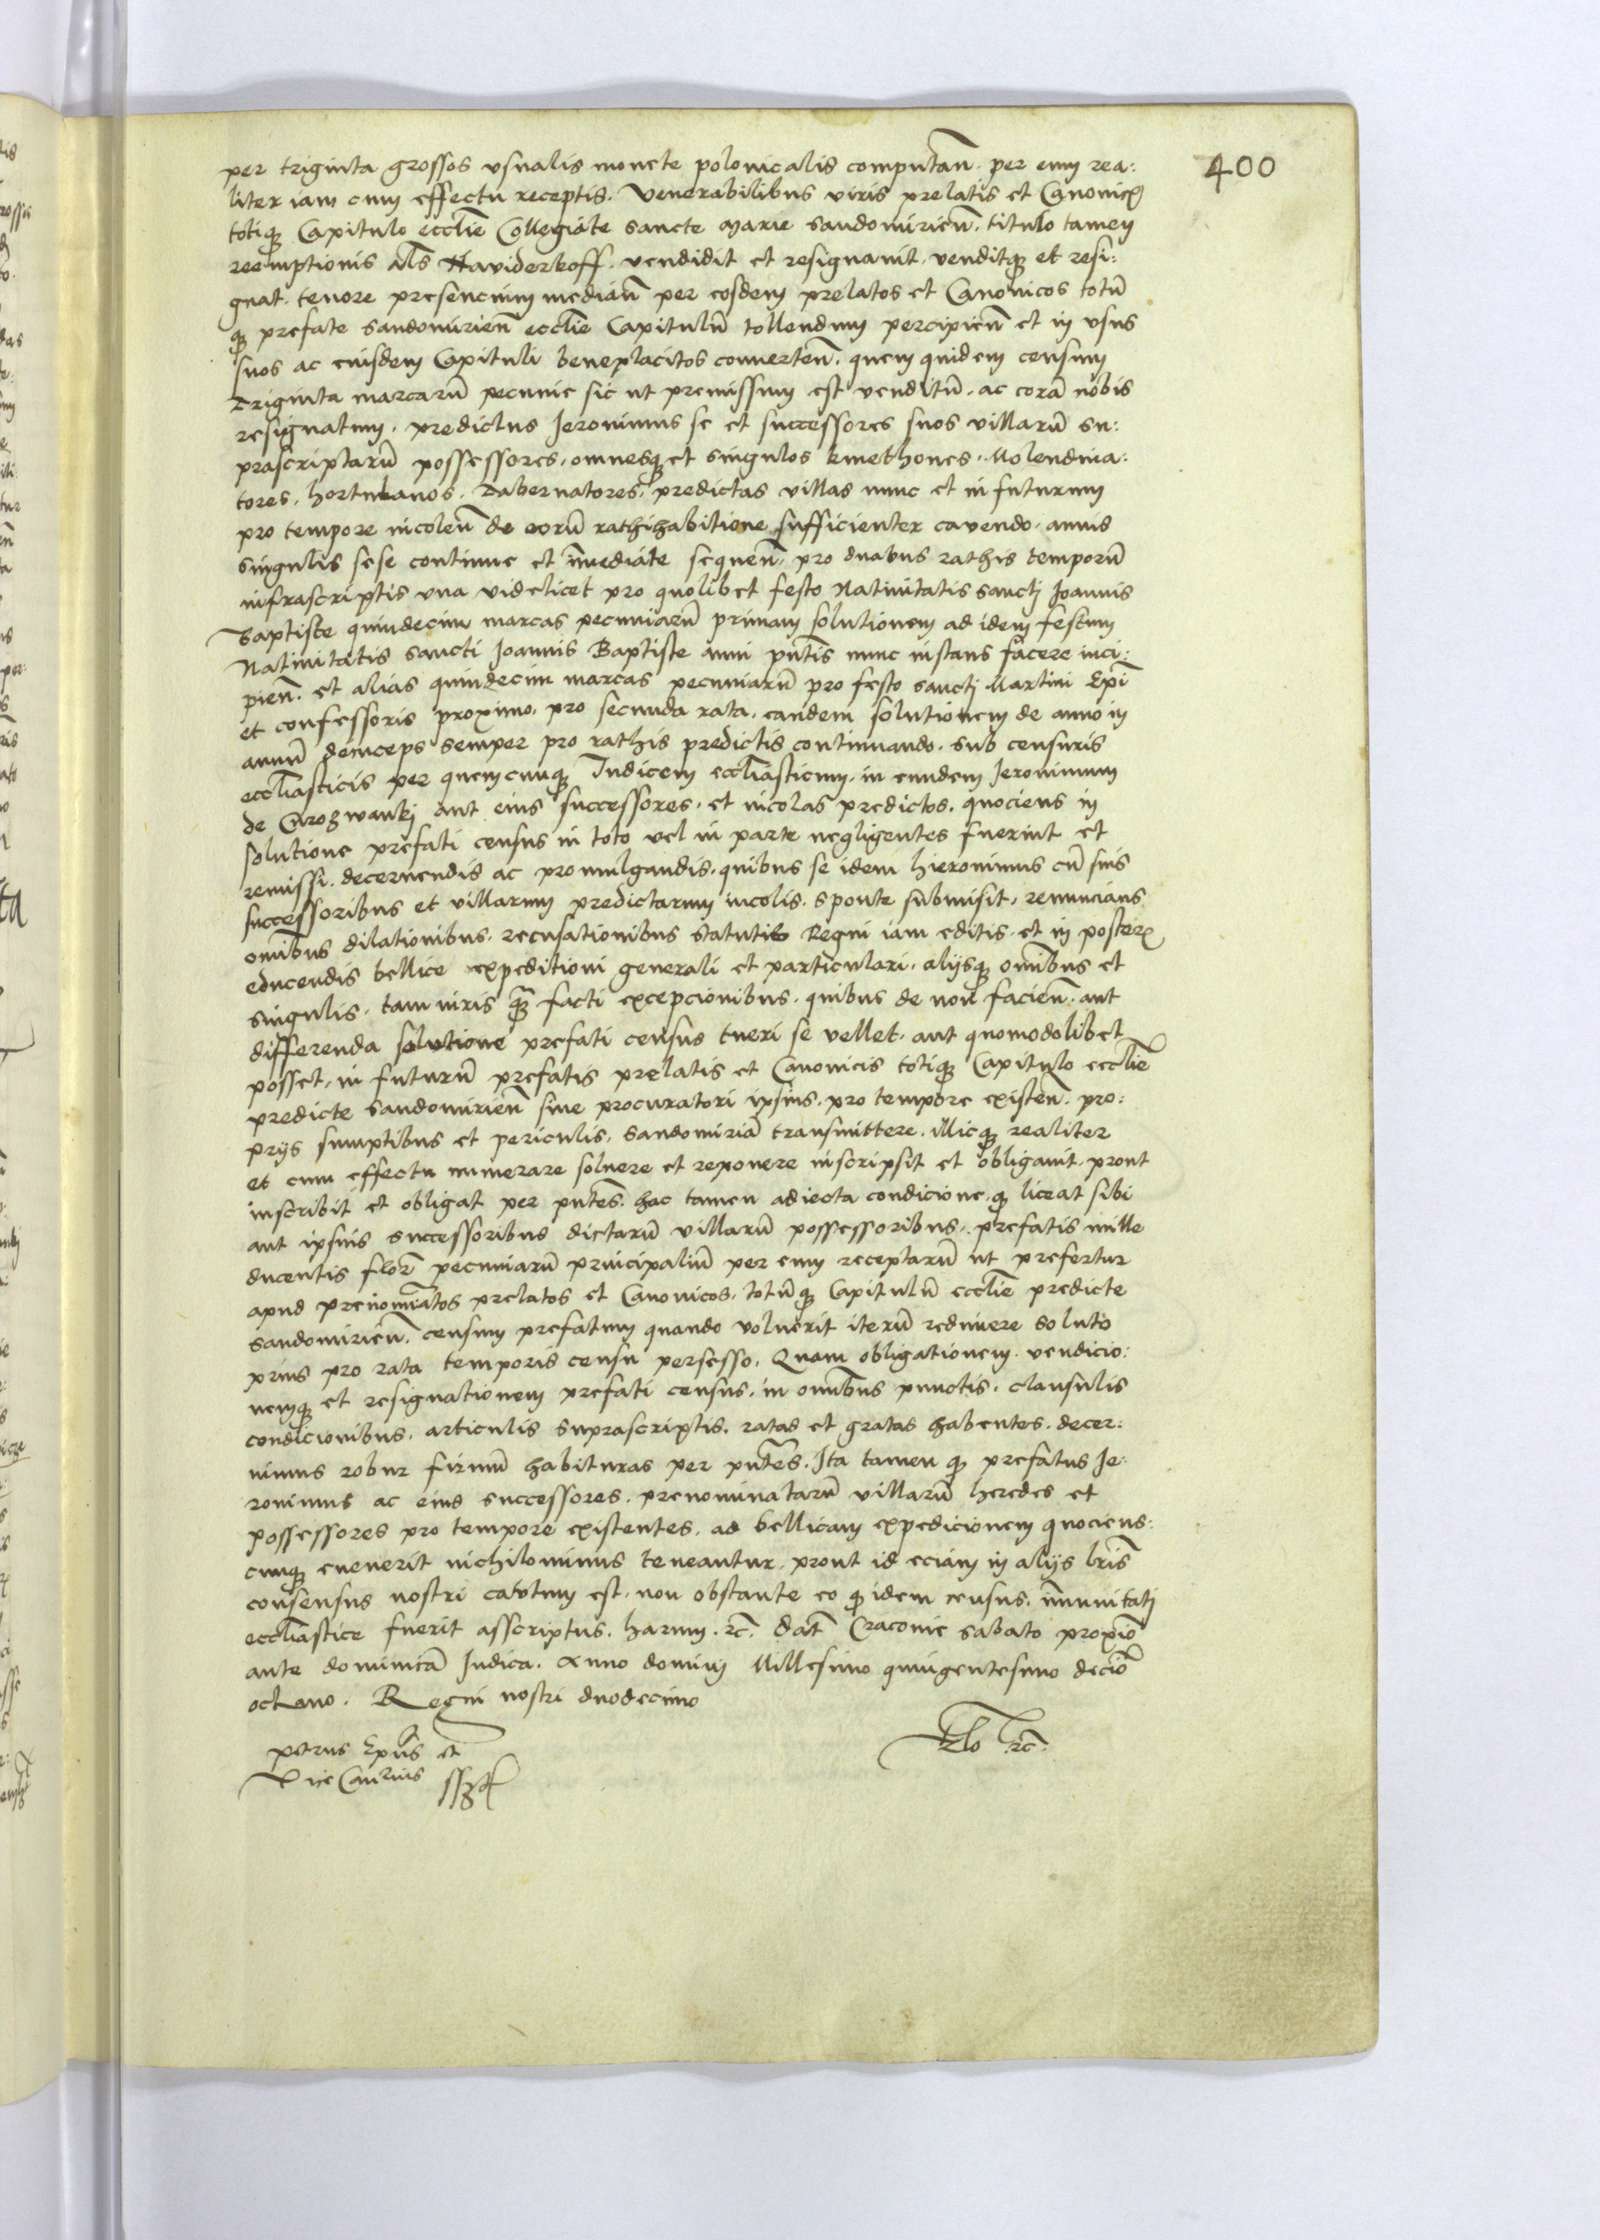 400
per triginta grossos vsualis monete polonicalis computañ. per eum rea:
liter iam cum effectu receptis. Venerabilibus viris prelatis et Canonicꝭ
totiqꝫ Capitulo eccľie Collegiate sancte Marie sandomirieñ. titulo tamen
reemptionis aľs Naviderkoff. vendidit et resignauit. venditqꝫ et resi:
gnat. tenore presencium mediañ per eosdem prelatos et Canonicos totū
qꝫ prefate sandomirieñ eccľie Capitulū tollendum percipieñ et in vsus
suos ac eiusdem Capituli beneplacitos conuerteñ. quem quidem censum
Triginta marcarū pecunie sic ut premissum est venditū. ac corā nobis
resignatum. predictus Jeronimus se et successores suos villarū su:
prascriptarū possessores. omnesqꝫ et singulos kmethones. Molendina:
tores. hortulanos. Tabernatores. predictas villas nunc et in futurum
pro tempore incoleñ de eorū rathihabitione sufficienter cavendo. annis
singulis sese continue et īmediate sequeñ. pro duabus rathis temporū
infrascriptis vna videlicet pro quolibet festo Natiuitatis sancti Joannis
Baptiste quindecim marcas pecuniarū primam solutionem ad idem festum
Natiuitatis sancti Joannis Baptiste anni pñtis nunc instans facere inci:
pieñ. et alias quindecim marcas pecuniarū pro festo sancti Martini Epī
et confessoris proximo. pro secunda rata. eandem solutionem de anno in
annū deinceps semper pro rathis predictis continuando. sub censuris
eccľiasticis per quemcunqꝫ Judicem eccľiasticum. in eundem Jeronimum
de Crozwanki aut eius successores. et incolas predictos. quociens in
solutione prefati census in toto vel in parte negligentes fuerint et
remissi. decernendis ac promulgandis. quibus se idem hieronimus cū suis
successoribus et villarum predictarum incolis. sponte submisit. renuncians
omībus dilationibus. recusationibus statutis Regni iam editis. et in posterꝭ
educendis bellice expeditioni generali et particulari. alijsqꝫ omībus et
singulis. tam iuris qꝫ facti excepcionibus. quibus de non facieñ. aut
differenda solutione prefati census tueri se vellet. aut quomodolibet
posset. in futurū prefatis prelatis et Canonicis totiqꝫ Capitulo eccľie
predicte sandomirieñ siue procuratori ipsius. pro tempore existeñ. pro:
prijs sumptibus et periculis. Sandomiriā transmittere. illicqꝫ realiter
et cum effectu numerare soluere et reponere inscripsit et obligauit. prout
inscribit et obligat per pñtes. hac tamen adiecta condicione. qꝫ liceat sibi
aut ipsius successoribus dictarū villarū possessoribus. prefatis mille
ducentis flor̄ pecuniarū principaliū per eum receptarū ut prefertur
apud prenomiātos prelatos et Canonicos. totūqꝫ Capitulū eccľie predicte
sandomirieñ. censum prefatum quando voluerit iterū redimere soluto
prius pro rata temporis censu persesso. Quam obligationem. vendicio:
nemqꝫ et resignationem prefati census. in omībus punctis. clausulis
condicionibus. articulis suprascriptis. ratas et gratas habentes. decer:
nimus robur firmū habituras per pñtes. Ita tamen qꝫ prefatus Je:
ronimus ac eius successores. prenominatarū villarū heredes et
possessores pro tempore existentes. ad bellicam expedicionem quociens:
cunqꝫ euenerit nichilominus teneantur. prout id eciam in alijs lr̄is
consensus nostri cautum est. non obstante eo qꝫ idem census. īmunitati
eccľiastice fuerit asscriptus. harum. ꝛc̄. dat̄ Cracouie sabato proxīo
ante dominicā Judica. Anno domini Millesimo quingentesimo deciō
octauo. Regni nostri duodecimo
petrus Ep̄us et
Vice Can̄rius
ssz
Rlo ꝛc̄.